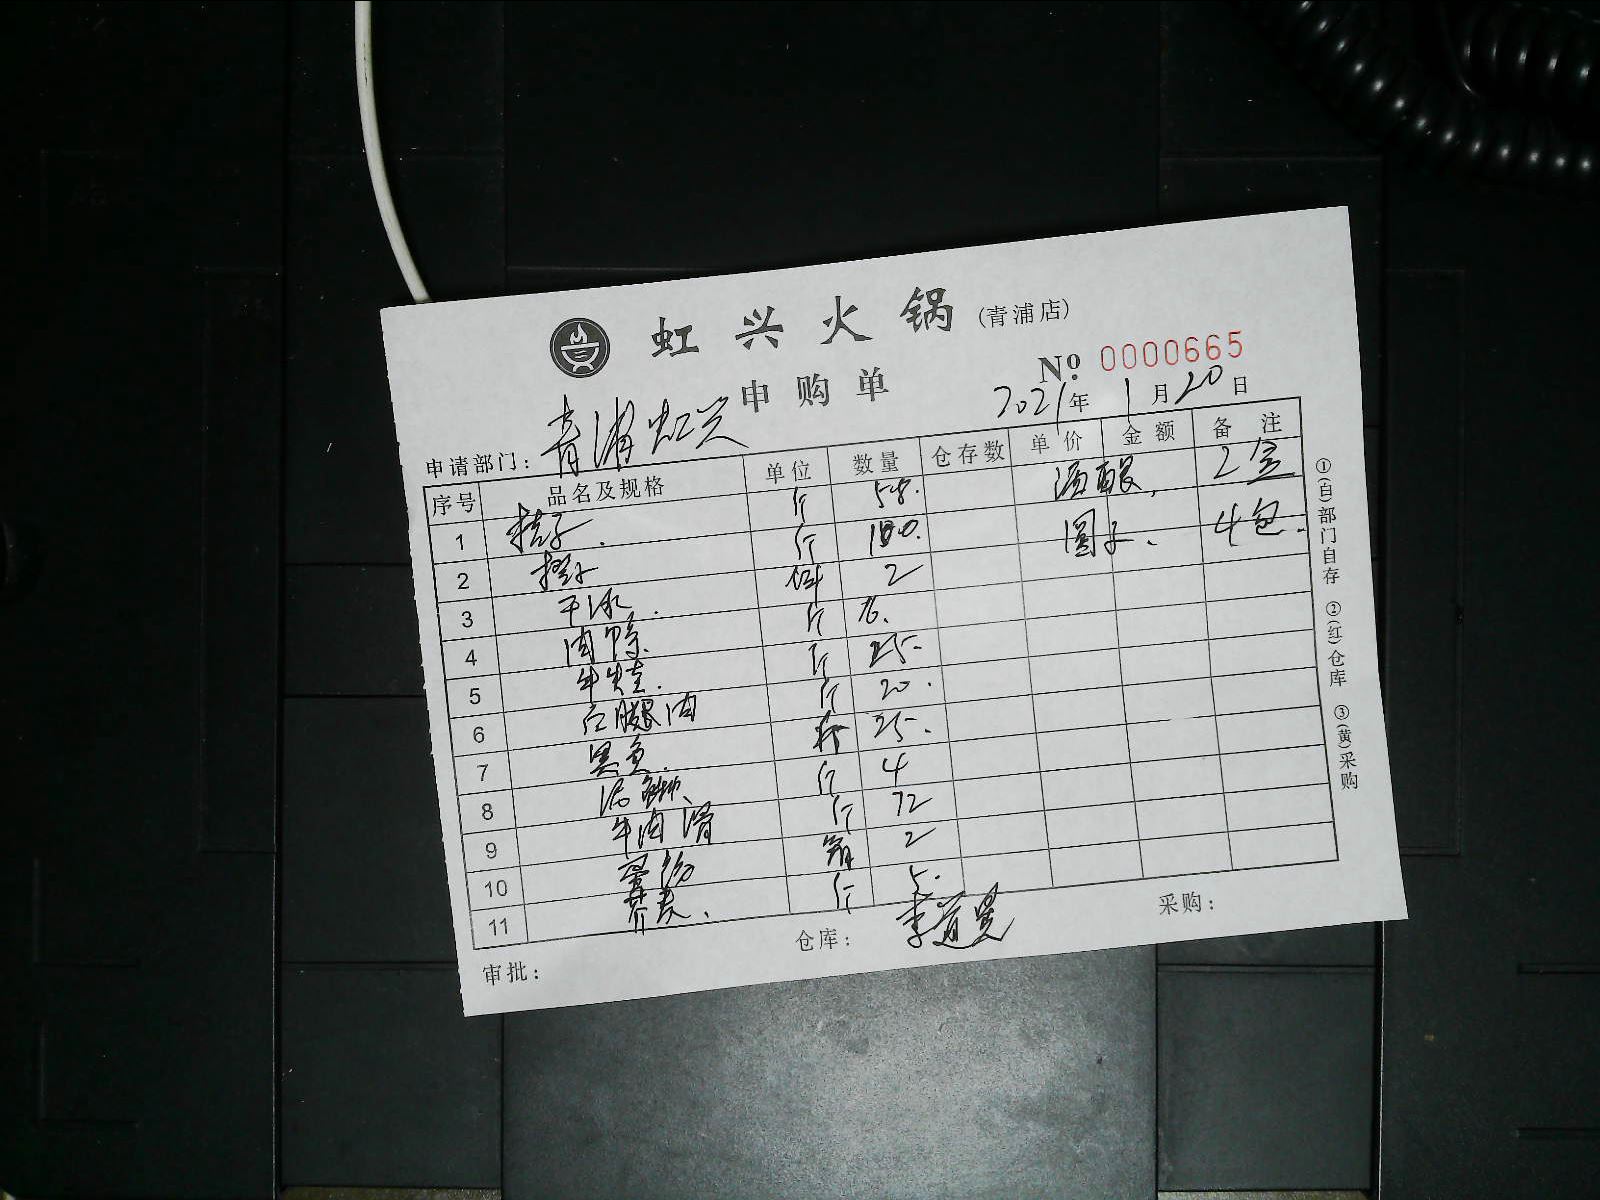 虹兴火锅(青浦店)
申购单
№ 0000665
2021年1月20日
申请部门: 青浦虹兴
序号 品名及规格 单位 数量 仓存数 单价 金额 备注
1 桔子. 斤 58. 酒酿. 2盒
2 斤 100. 圆子. 4包.
3 干冰. 2
4 斤
5 牛 斤 25.
6 腿肉 斤 20.
7 黑鱼. 25.
8 泥鳅、 斤 4
9 牛肉滑 斤 72
10 箱 2
11 荠麦. 斤 5.
审批:
仓库: 李道
采购:
①(白)部门自存 ②(红)仓库 ③(黄)采购